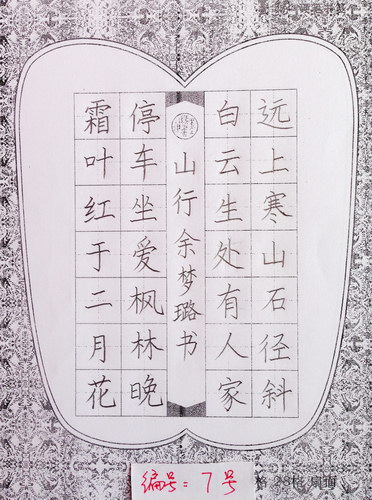 远上寒山石径斜
白云生处有人家
山行 余梦璐书
停车坐爱枫林晚
霜叶红于二月花
编号:7号
格 28格 扇面